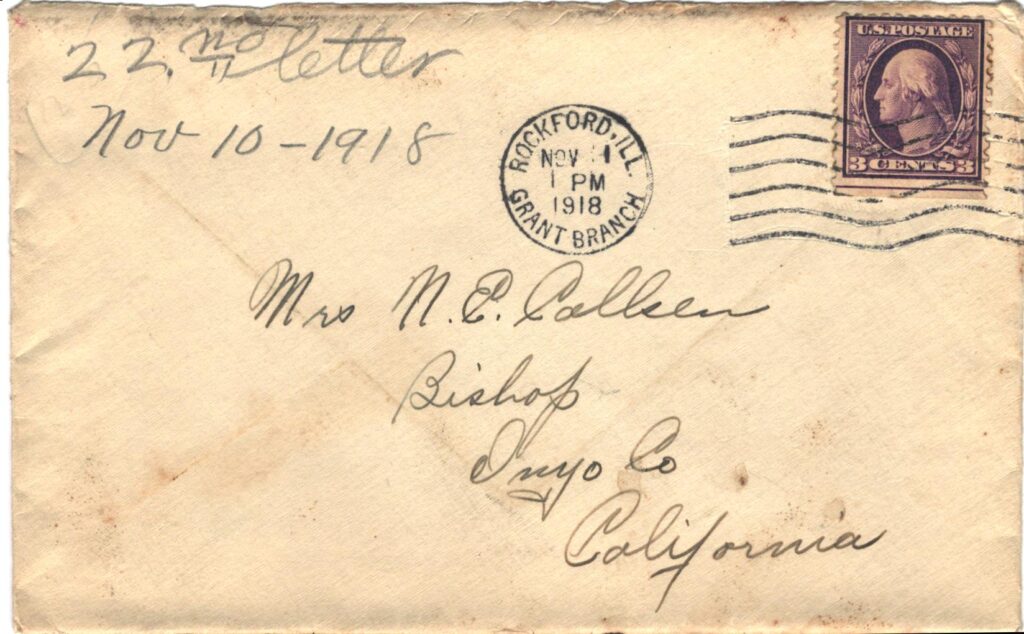 22.nd letter
Nov 10-1918
U.S. POSTAGE
3 CENTS 3
ROCKFORD, ILL.
NOV 11
1 PM
1918
GRANT BRANCH
Mrs N. E. Callsen
Bishop
Inyo Co
California